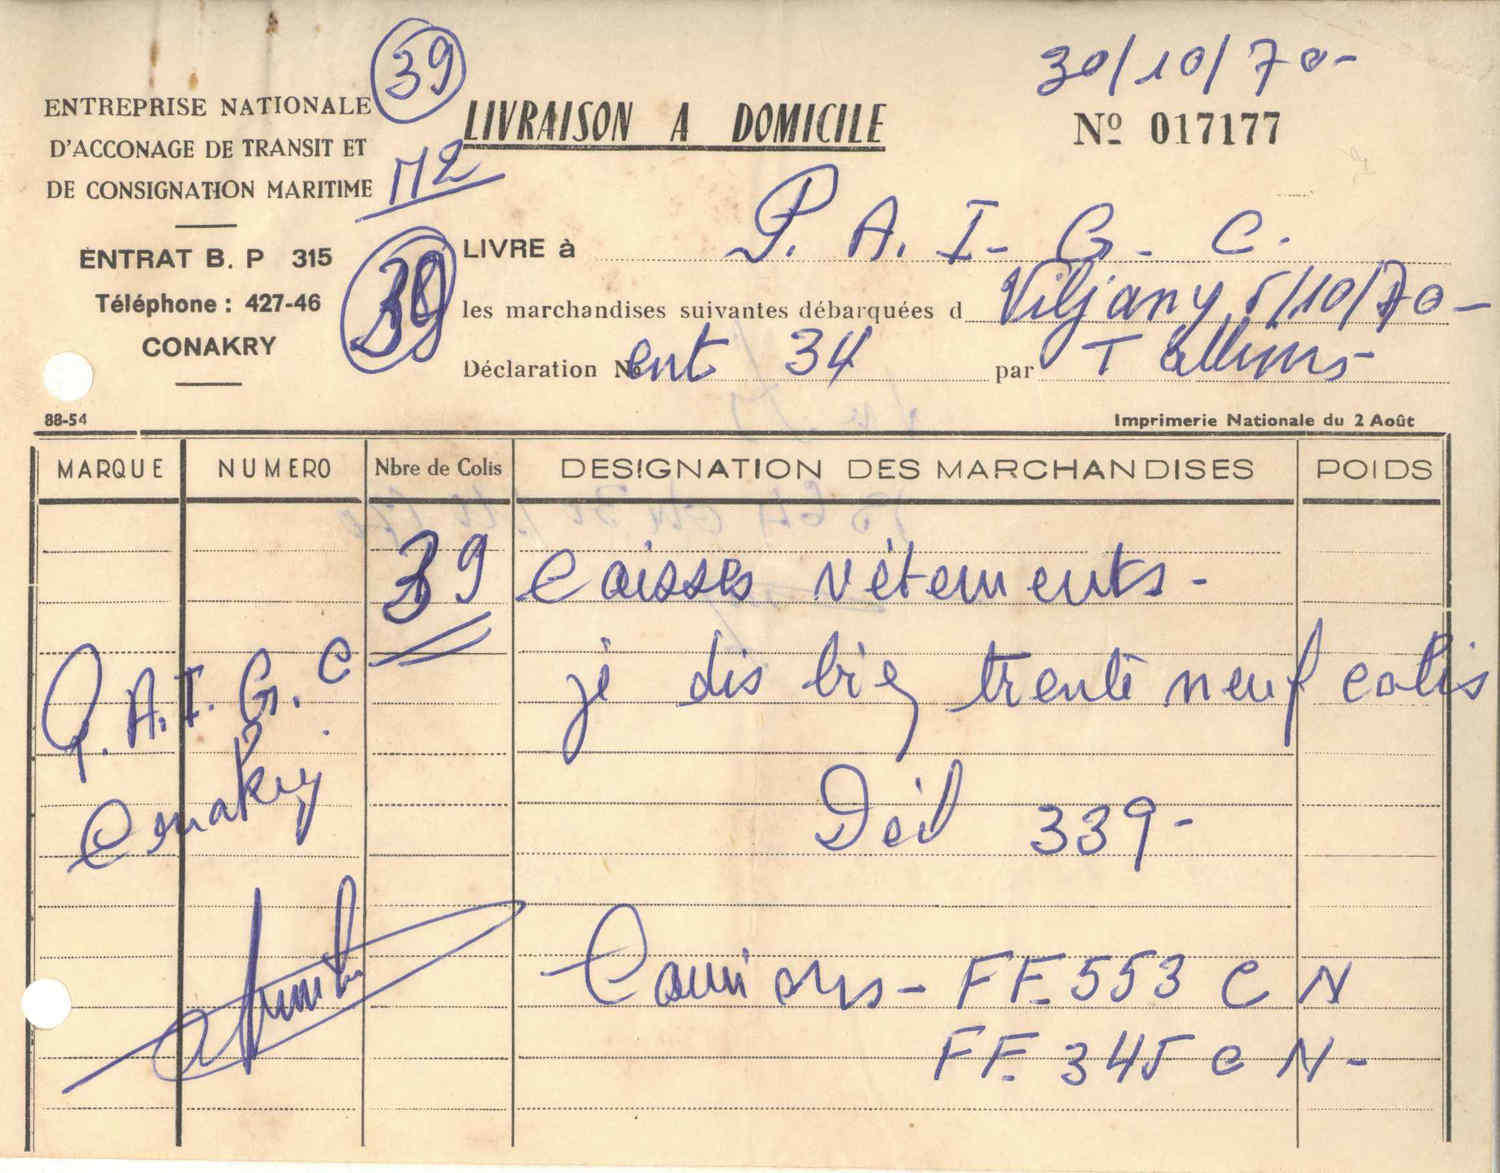 30/10/70-
39
ENTREPRISE NATIONALE
D'ACCONAGE DE TRANSIT ET
DE CONSIGNATION MARITIME
LIVRAISON A DOMICILE
Nº 017177
M2
ENTRAT B. P 315
Téléphone : 427-46
CONAKRY
39
LIVRE à P. A. I- G- C.
les marchandises suivantes débarquées d Viljany 5/10/70-
Déclaration No ent 34 par T
88-54
Imprimerie Nationale du 2 Août
MARQUE NUMERO Nbre de Colis DESIGNATION DES MARCHANDISES POIDS
39 caisses vêtements-
P.A.I.G.C
Conakry
je dis bien trente neuf colis
Dél 339-
Camions- FF.553 CN
FF.345 CN-